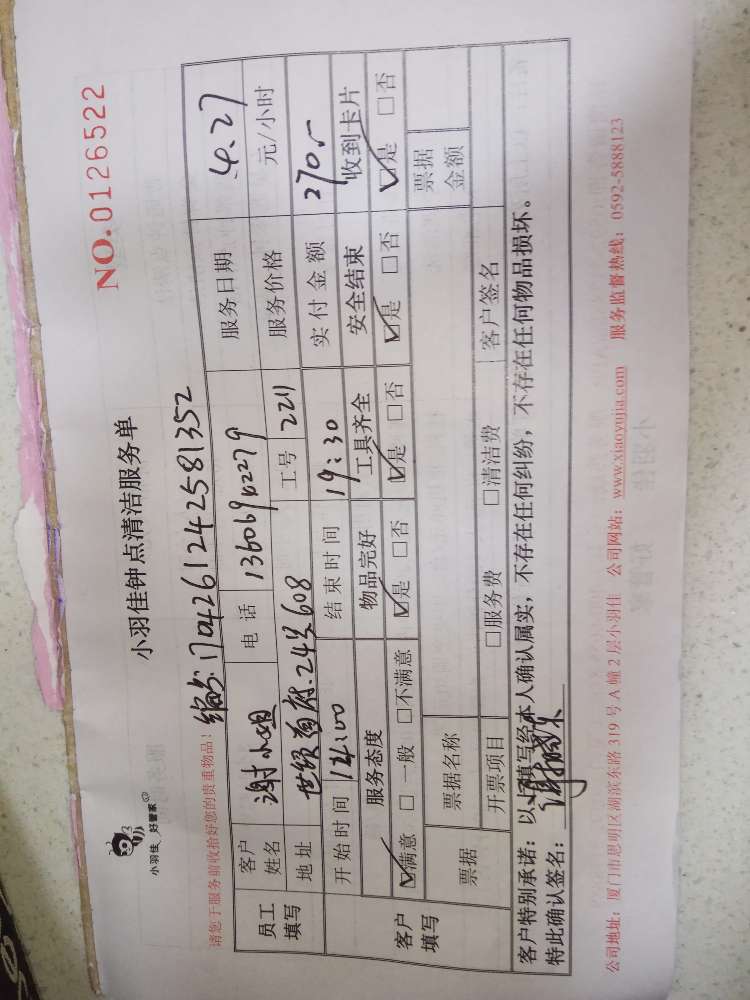 小羽佳 好管家
小羽佳钟点清洁服务单
NO.0126522
请您于服务前收拾好您的贵重物品!
编号:170426124258 1352
员工填写 客户姓名 谢小姐 电话 服务日期 4.27
地址 243608 工号 2211 服务价格 元/小时
开始时间 14:00 结束时间 19:30 实付金额 270.-
客户填写 服务态度 物品完好 工具齐全 安全结束 收到卡片
☑满意 □一般 □不满意 ☑是 □否 ☑是 □否 ☑是 □否 ☑是 □否
票据 票据名称 票据金额
开票项目 □服务费 □清洁费 客户签名
客户特别承诺:以上填写经本人确认属实,不存在任何纠纷,不存在任何物品损坏。
特此确认签名:
公司地址:厦门市思明区湖滨东路 319 号 A 幢 2 层小羽佳 公司网站:www.xiaoyujia.com 服务监督热线:0592-5888123